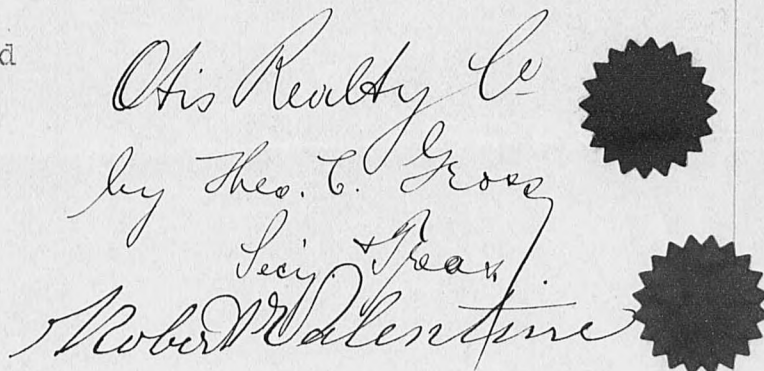 d
Otis Realty Co
by Theo. C. Gross
Secy & Treas.
Robert Valentine